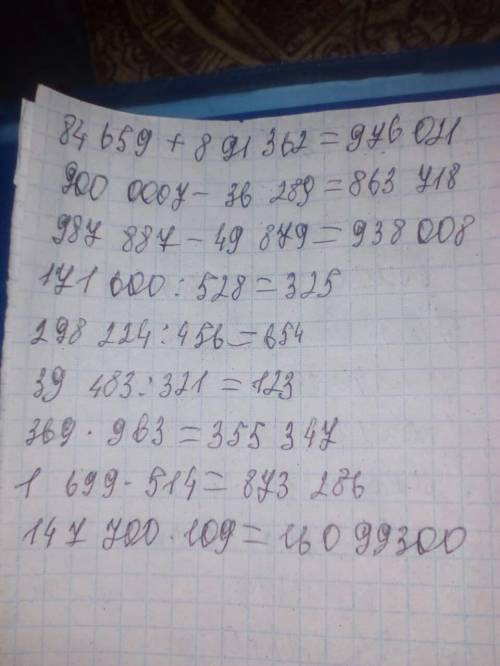 84 659 + 891 362 = 976 021
900 0007 - 36 289 = 863 718
987 887 - 49 879 = 938 008
171 600 : 528 = 325
298 224 : 456 = 654
39 483 : 321 = 123
369 · 963 = 355 347
1 699 · 514 = 873 286
147 700 · 109 = 16 099300